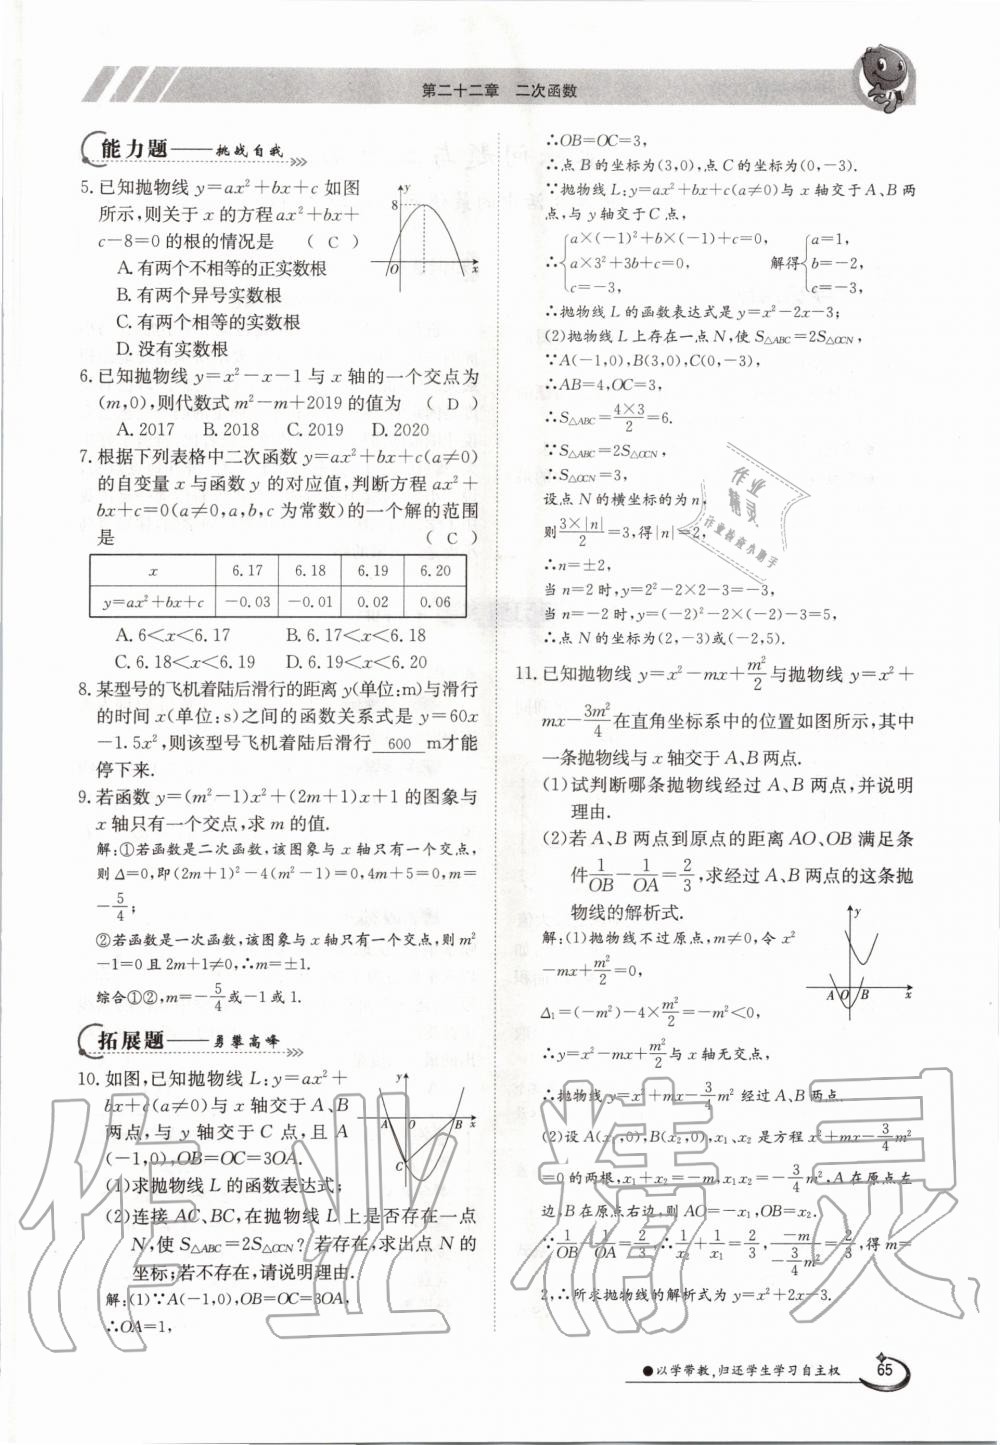 第二十二章 二次函数
能力题——挑战自我
5.已知抛物线 y=ax²+bx+c 如图
所示,则关于 x 的方程 ax²+bx+
c-8=0 的根的情况是 ( C )
A.有两个不相等的正实数根
B.有两个异号实数根
C.有两个相等的实数根
D.没有实数根
y
8
O
x
6.已知抛物线 y=x²-x-1 与 x 轴的一个交点为
(m,0),则代数式 m²-m+2019 的值为 ( D )
A.2017 B.2018 C.2019 D.2020
7.根据下列表格中二次函数 y=ax²+bx+c(a≠0)
的自变量 x 与函数 y 的对应值,判断方程 ax²+
bx+c=0(a≠0,a,b,c 为常数)的一个解的范围
是 ( C )
x 6.17 6.18 6.19 6.20
y=ax²+bx+c -0.03 -0.01 0.02 0.06
A.6<x<6.17 B.6.17<x<6.18
C.6.18<x<6.19 D.6.19<x<6.20
8.某型号的飞机着陆后滑行的距离 y(单位:m)与滑行
的时间 x(单位:s)之间的函数关系式是 y=60x
-1.5x²,则该型号飞机着陆后滑行 600 m才能
停下来.
9.若函数 y=(m²-1)x²+(2m+1)x+1 的图象与
x 轴只有一个交点,求 m 的值.
解:①若函数是二次函数,该图象与 x 轴只有一个交点,
则 Δ=0,即(2m+1)²-4(m²-1)=0,4m+5=0,m=
-5/4;
②若函数是一次函数,该图象与 x 轴只有一个交点,则 m²
-1=0 且 2m+1≠0,∴m=±1.
综合①②,m=-5/4或-1或1.
拓展题——勇攀高峰
10.如图,已知抛物线 L:y=ax²+
bx+c(a≠0)与 x 轴交于 A、B
两点,与 y 轴交于 C 点,且 A
(-1,0),OB=OC=3OA.
y
A O B x
C
(1)求抛物线 L 的函数表达式;
(2)连接 AC、BC,在抛物线 L 上是否存在一点
N,使 S△ABC=2S△OCN?若存在,求出点 N 的
坐标;若不存在,请说明理由.
解:(1)∵A(-1,0),OB=OC=3OA,
∴OA=1,
∴OB=OC=3,
∴点 B 的坐标为(3,0),点 C 的坐标为(0,-3).
∵抛物线 L:y=ax²+bx+c(a≠0)与 x 轴交于 A、B 两
点,与 y 轴交于 C 点,
a×(-1)²+b×(-1)+c=0, a=1,
∴ a×3²+3b+c=0, 解得 b=-2,
c=-3, c=-3,
∴抛物线 L 的函数表达式是 y=x²-2x-3;
(2)抛物线 L 上存在一点 N,使 S△ABC=2S△OCN,
∵A(-1,0),B(3,0),C(0,-3),
∴AB=4,OC=3,
∴S△ABC=4×3/2=6.
∵S△ABC=2S△OCN,
∴S△OCN=3,
设点 N 的横坐标的为 n,
则3×|n|/2=3,得|n|=2,
∴n=±2,
当 n=2 时,y=2²-2×2-3=-3,
当 n=-2 时,y=(-2)²-2×(-2)-3=5,
∴点 N 的坐标为(2,-3)或(-2,5).
11.已知抛物线 y=x²-mx+m²/2与抛物线 y=x²+
mx-3m²/4在直角坐标系中的位置如图所示,其中
一条抛物线与 x 轴交于 A、B 两点.
(1)试判断哪条抛物线经过 A、B 两点,并说明
理由.
(2)若 A、B 两点到原点的距离 AO、OB 满足条
件1/OB-1/OA=2/3,求经过 A、B 两点的这条抛
物线的解析式.
y
A O B x
解:(1)抛物线不过原点,m≠0,令 x²
-mx+m²/2=0,
Δ₁=(-m²)-4×m²/2=-m²<0,
∴y=x²-mx+m²/2与 x 轴无交点,
∴抛物线 y=x²+mx-3/4m² 经过 A、B 两点.
(2)设 A(x₁,0),B(x₂,0),x₁、x₂ 是方程 x²+mx-3/4m²
=0 的两根,x₁+x₂=-m,x₁x₂=-3/4m²,A 在原点左
边,B 在原点右边,则 AO=-x₁,OB=x₂.
∵1/OB-1/OA=2/3,∴1/x₂+1/x₁=2/3,-m/(-3/4m²)=2/3,得 m=
2,∴所求抛物线的解析式为 y=x²+2x-3.
作业
精灵
作业检查小助手
作业精灵
●以学带教,归还学生学习自主权
65